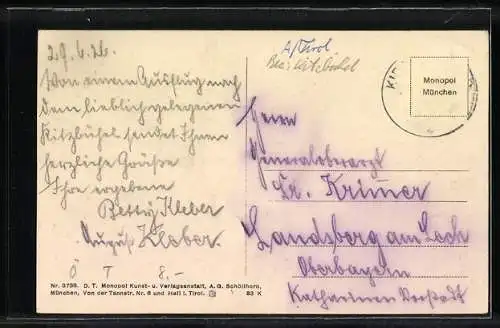 29.6.26.
Von einem Ausflug nach
dem lieblich gelegenen
Kitzbühel sendet Ihnen
herzliche Grüße
Ihre ergebene
Betty Kleber
August Kleber.
Ö T 8.-
A/Tirol
Bez: Kitzbühel
Monopol
München
Herrn
Generaloberarzt
Dr. Krimer
Landsberg am Lech
Oberbayern
Katharinen Vorstadt
Nr. 3798. D. T. Monopol Kunst- u. Verlagsanstalt, A. G. Schöllhorn,
München, Von der Tannstr. Nr. 6 und Hall i. Tirol. 83 K